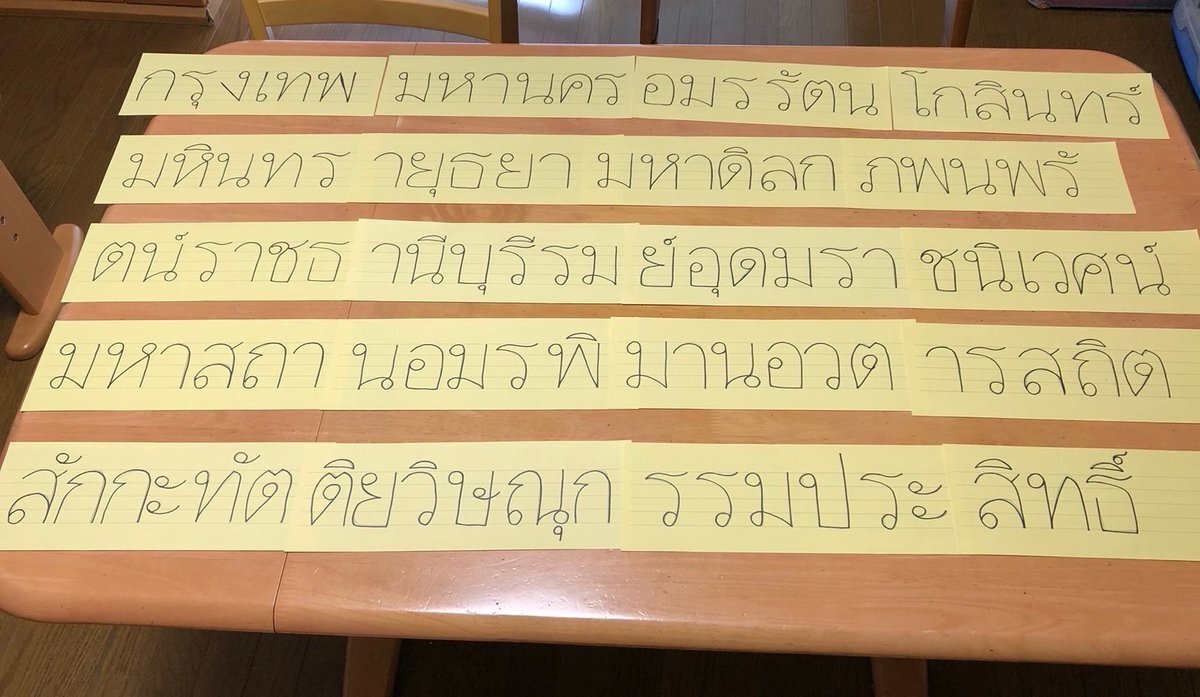 กรุงเทพมหานครอมรรัตนโกสินทร์
มหินทรายุธยามหาดิลกภพนพรั
ตน์ราชธานีบุรีรมย์อุดมราชนิเวศน์
มหาสถานอมรพิมานอวตารสถิต
สักกะทัตติยวิษณุกรรมประสิทธิ์